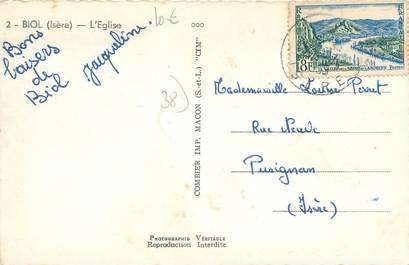 2 - BIOL (Isère) — L'Eglise
10€
Bons
baisers
de
Biol
Jacqueline.
38)
COMBIER IMP. MACON (S.-et-L.) "CIM"
18F
Mademoiselle Louise Perret
Rue Neuve
Pusignan
(Isère)
PHOTOGRAPHIE VÉRITABLE
Reproduction Interdite